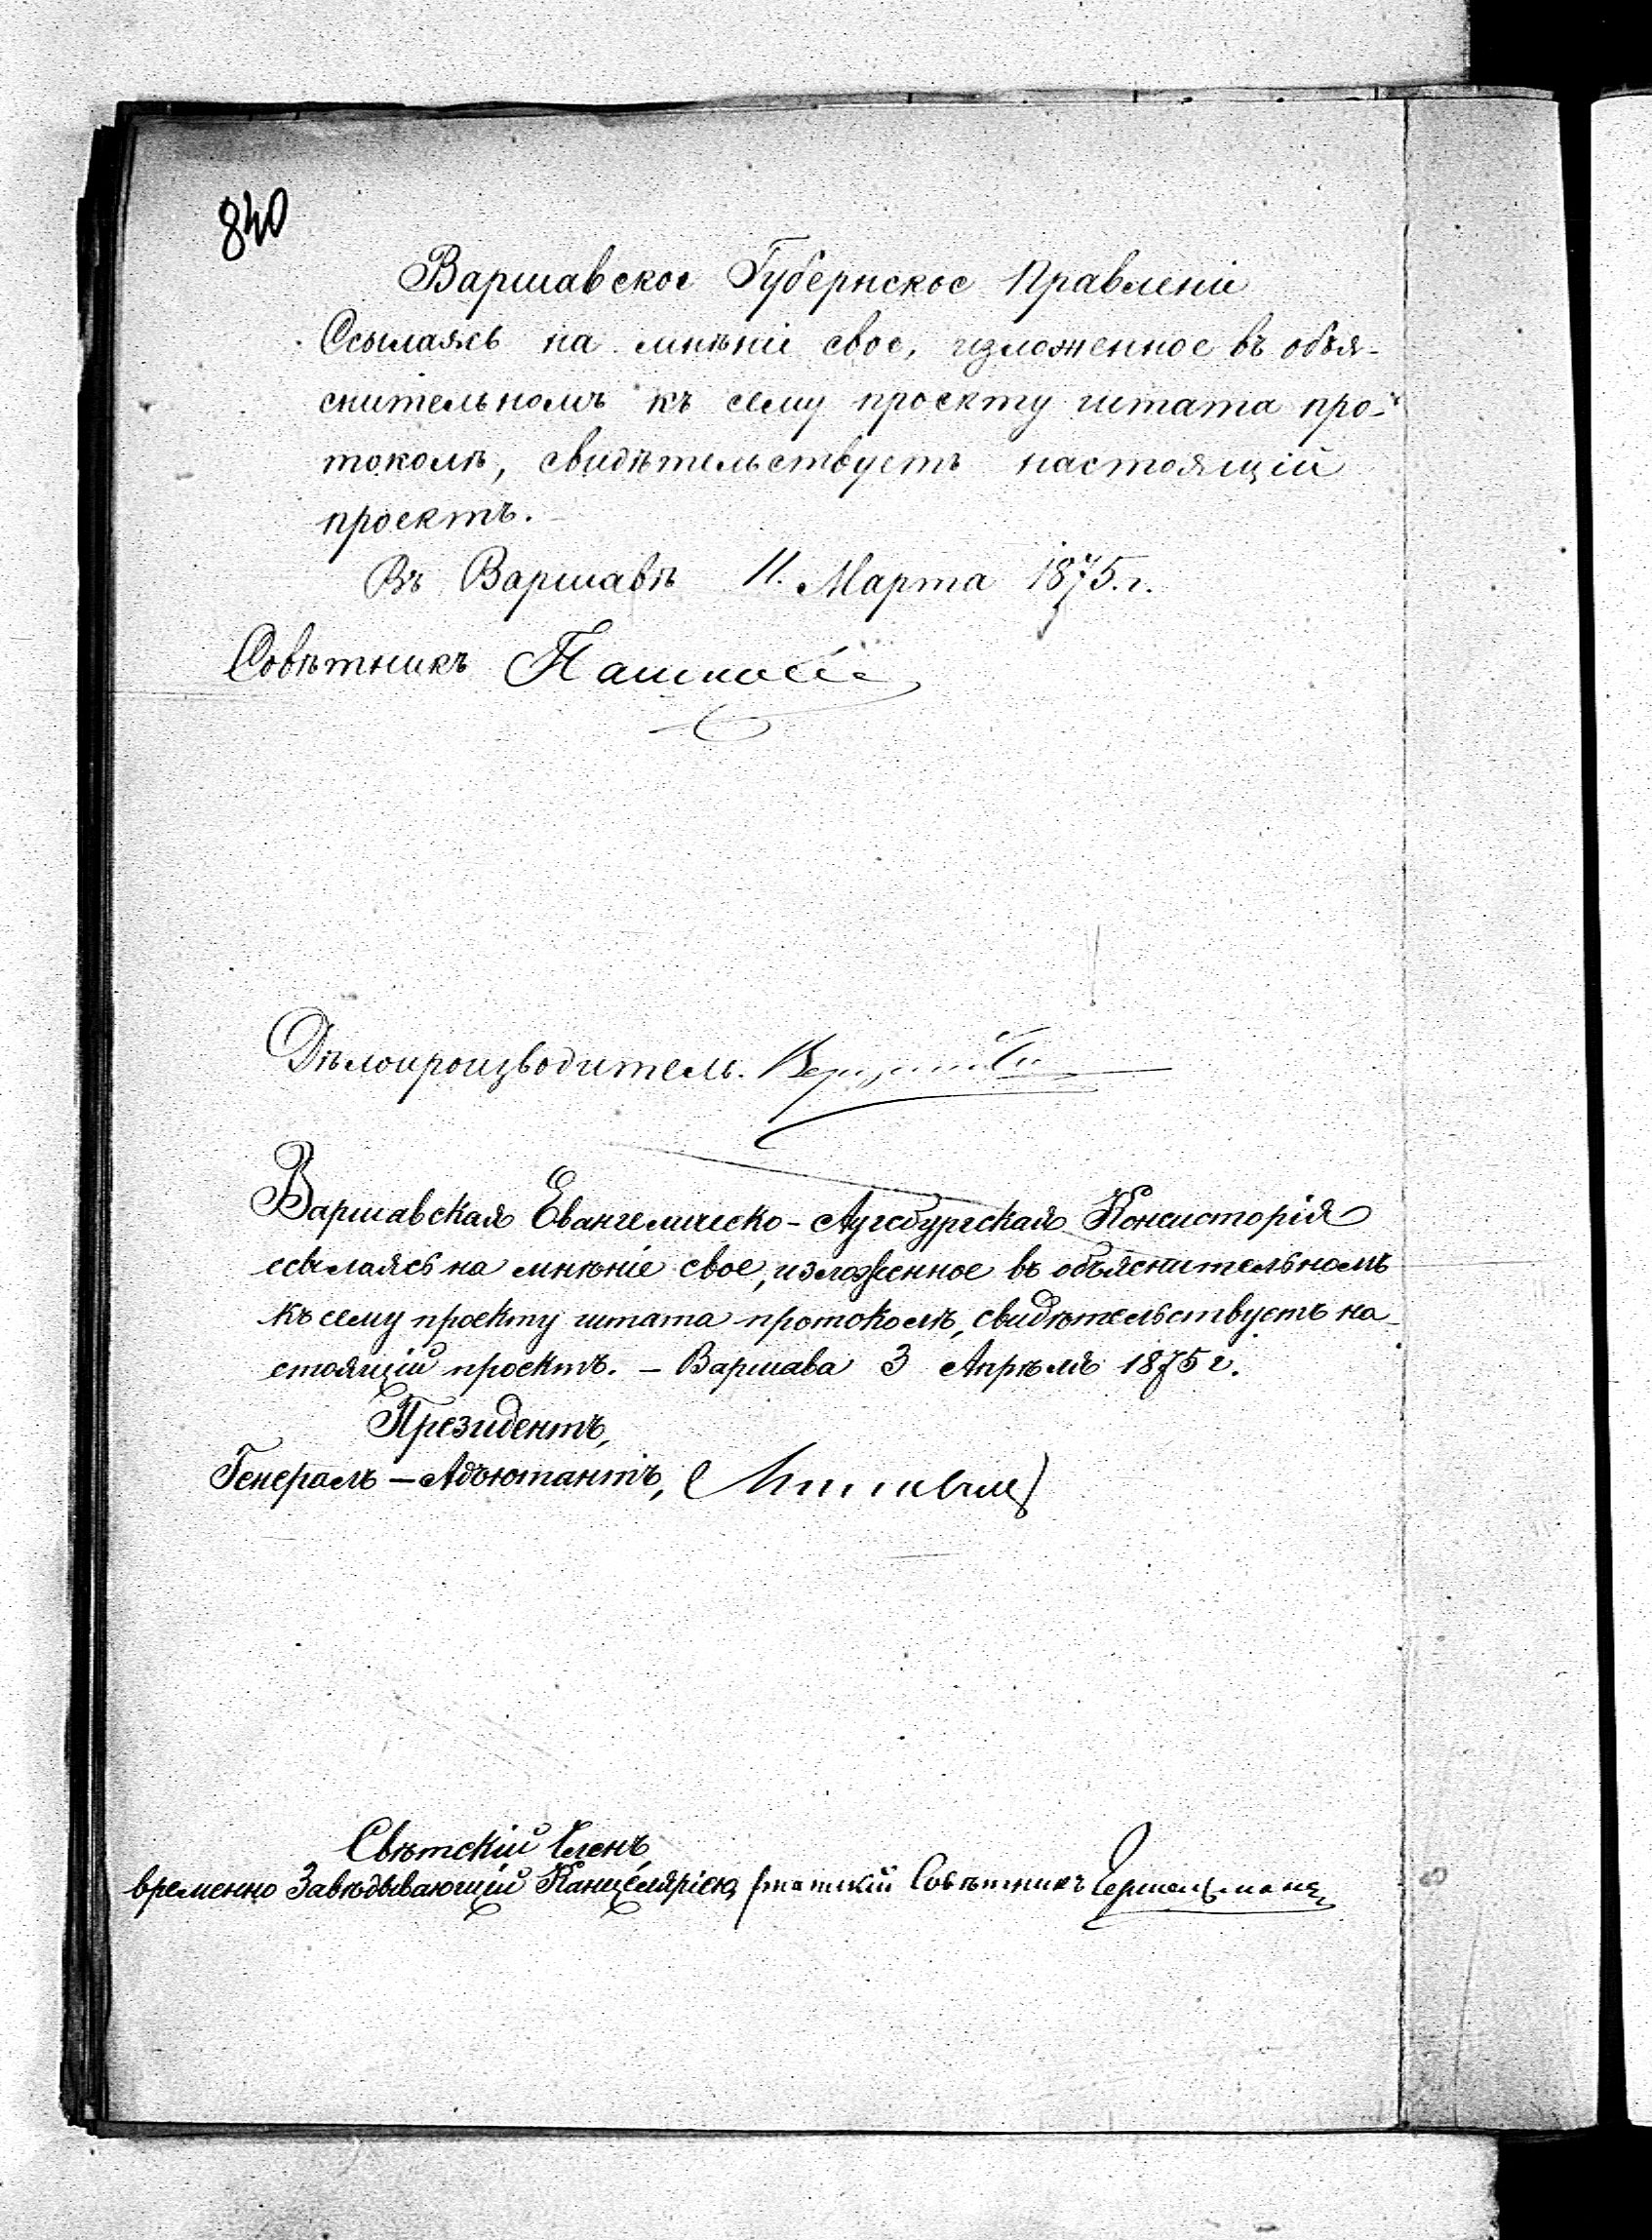 840
Варшавское Губернское Правленіе
Ссылаясь на мнѣніе свое, изложенное въ объя-
снительномъ къ сему проекту штата про-
токолѣ, свидѣтельствуетъ настоящій
проектъ.
Въ Варшавѣ 11. Марта 1875. г.
Совѣтникъ
Дѣлопроизводитель.
Варшавская Евангелическо-Аугсбургская Консисторія
ссылаясь на мнѣніе свое, изложенное въ объяснительномъ
къ сему проекту штата протоколѣ, свидѣтельствуетъ на-
стоящій проектъ. – Варшава 3 Апрѣля 1875 г.
Президентъ,
Генералъ – Адъютантъ,
Свѣтскій Членъ,
временно Завѣдывающій Канцеляріею, Статскій Совѣтникъ